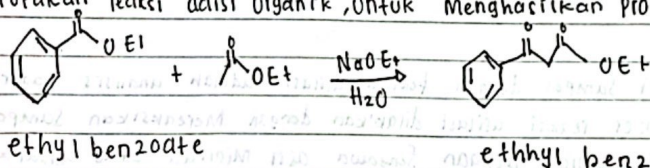 reaksi adisi organik, untuk Menghasilkan pro
O O O O
O Et + OEt NaOEt OEt
H2O
ethyl benzoate ethhyl benz